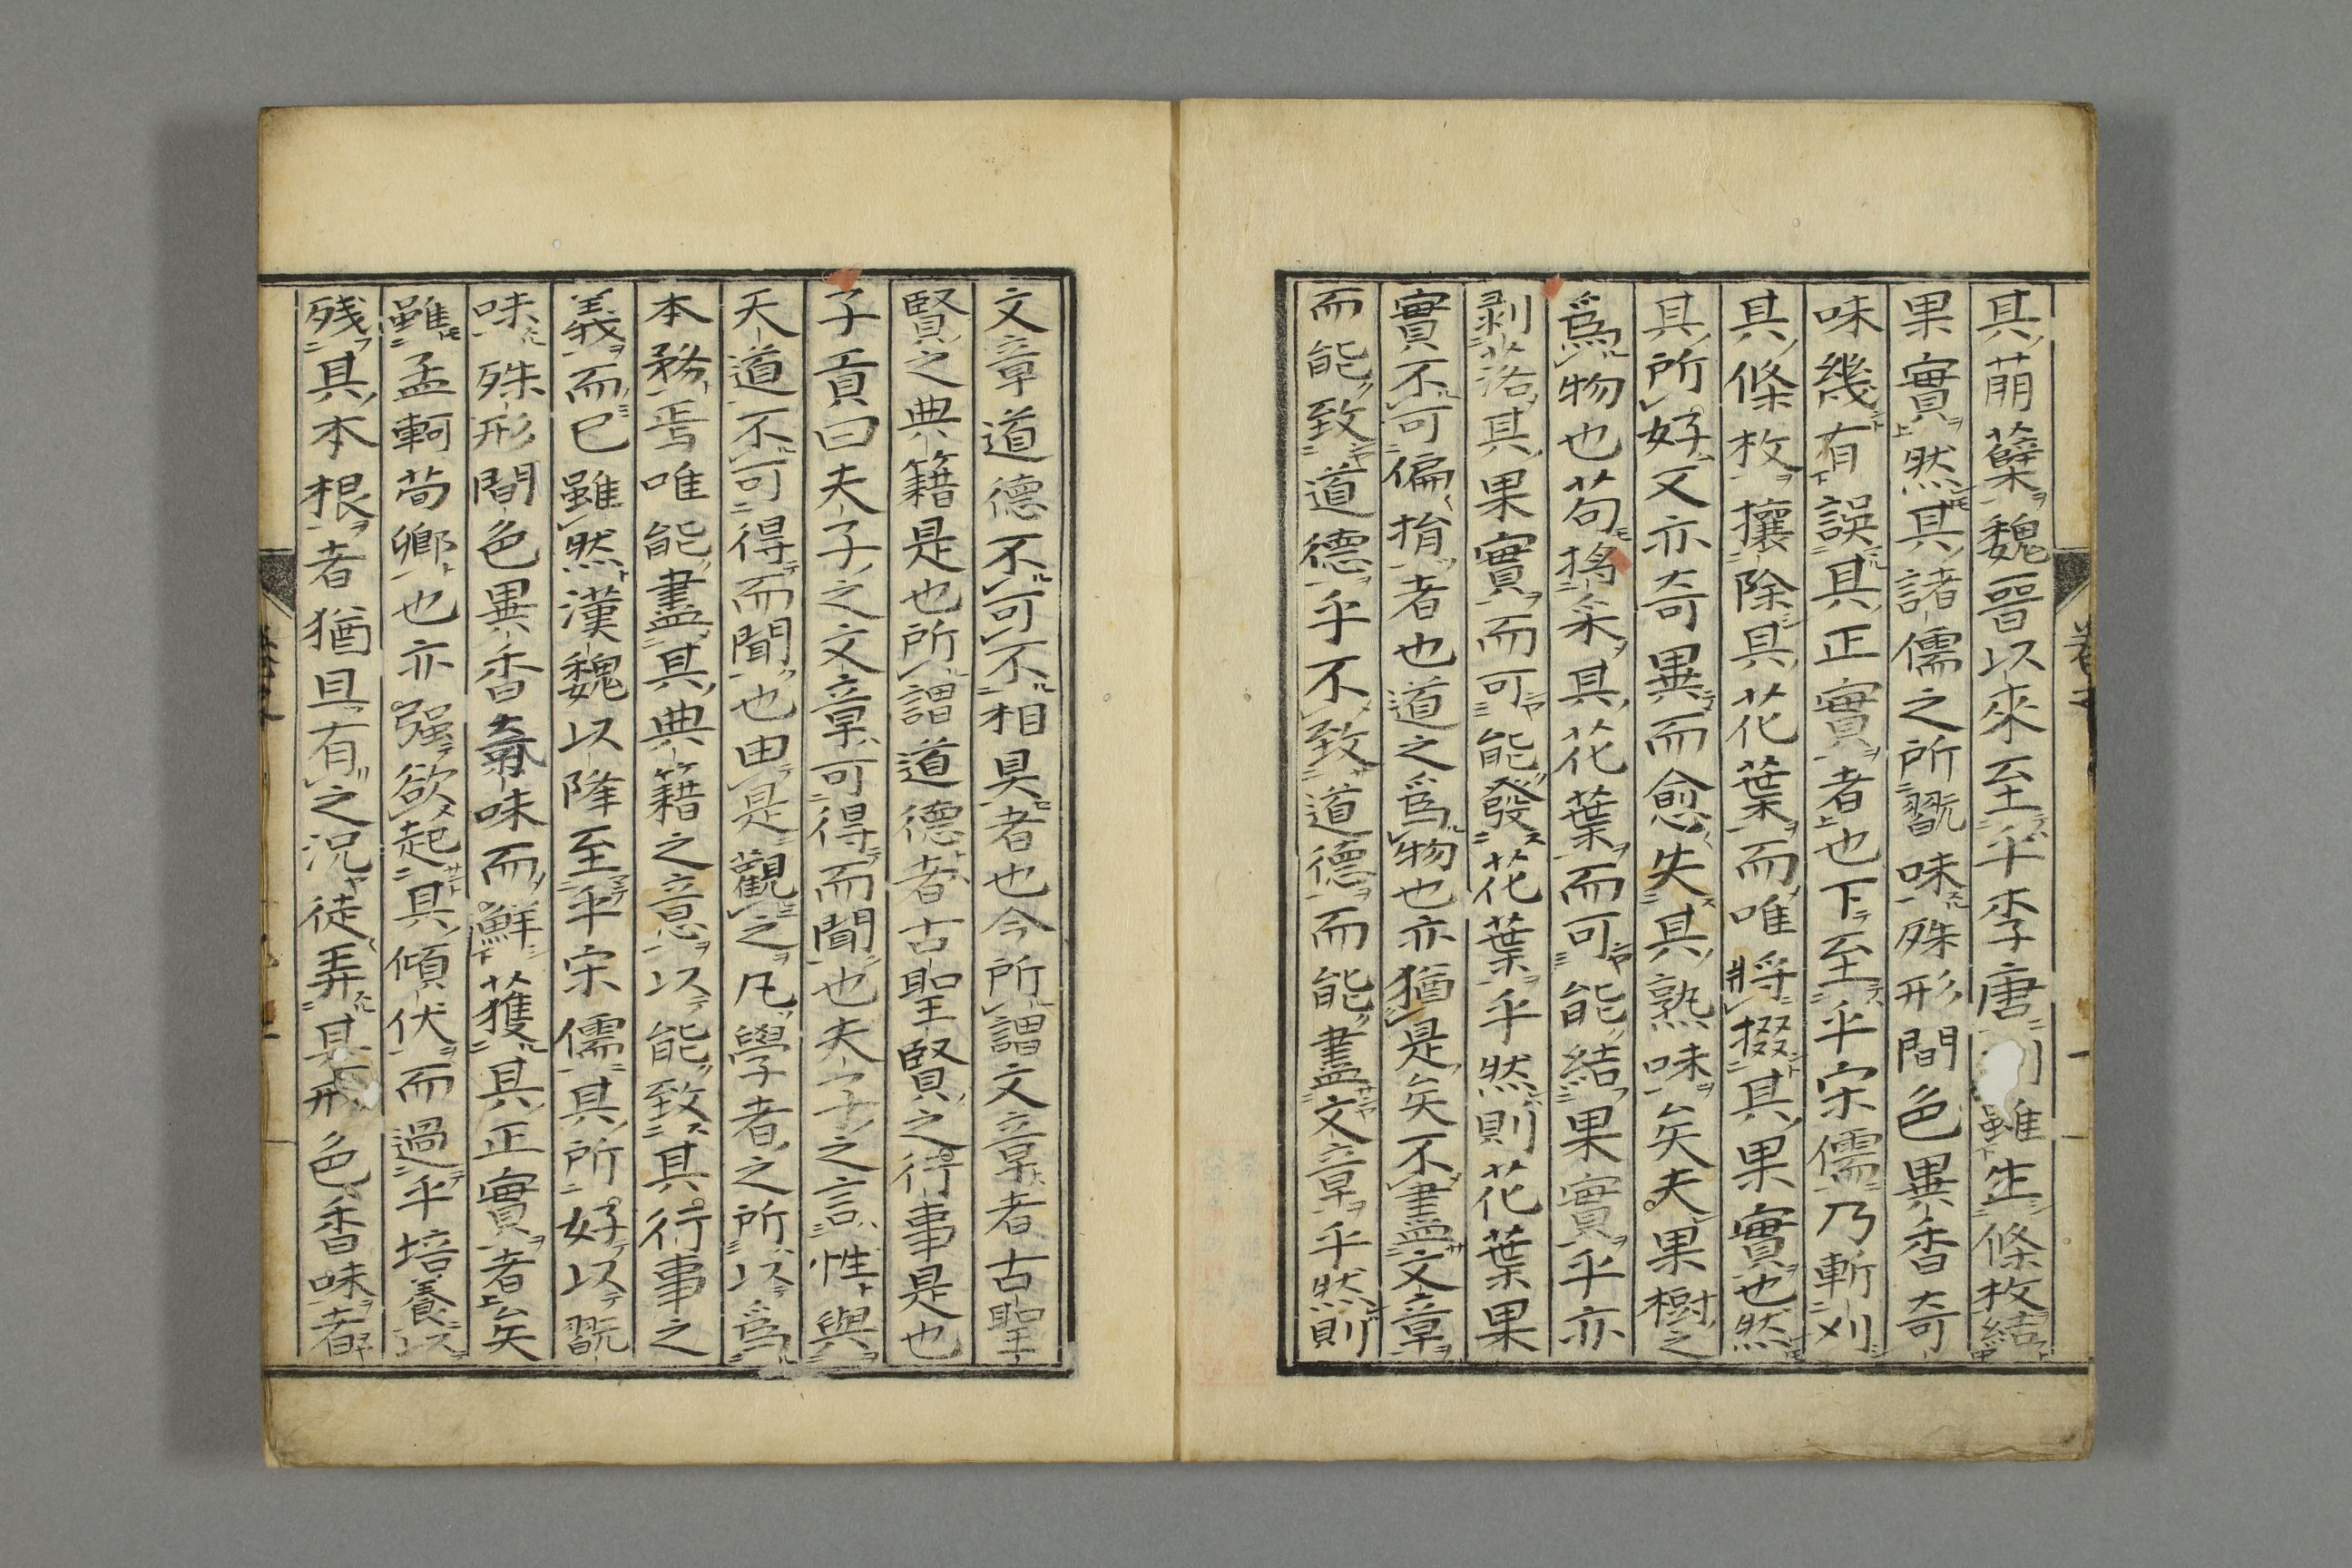 其萠蘖魏晉以來至乎李唐雖生條枚結
果實然其諸儒之所翫味殊形間色異香奇
味幾有誤其正實者也下至乎宋儒乃斬刈
其條枚攘除其花葉而唯將掇其果實也然
其所好又亦奇異而愈失其熟味矣夫果樹之
爲物也苟搖采其花葉而可能結果實乎亦
剥落其果實而可能發花葉乎然則花葉果
實不可偏捐者也道之爲物也亦猶是矣不盡文章
而能致道德乎不致道德而能盡文章乎然則
文章道德不可不相具者也今所謂文章者古聖
賢之典籍是也所謂道德者古聖賢之行事是也
子貢曰夫子之文章可得而聞也夫子之言性與
天道不可得而聞也由是觀之凡學者之所以爲
本務焉唯能盡其典籍之意以能致其行事之
義而已雖然漢魏以降至乎宋儒其所好以翫
味殊形間色異香奇味而鮮獲其正實者矣
雖孟軻荀卿也亦强欲起其傾伏而過乎培養以
殘其本根者猶且有之況徒弄其形色香味者耶